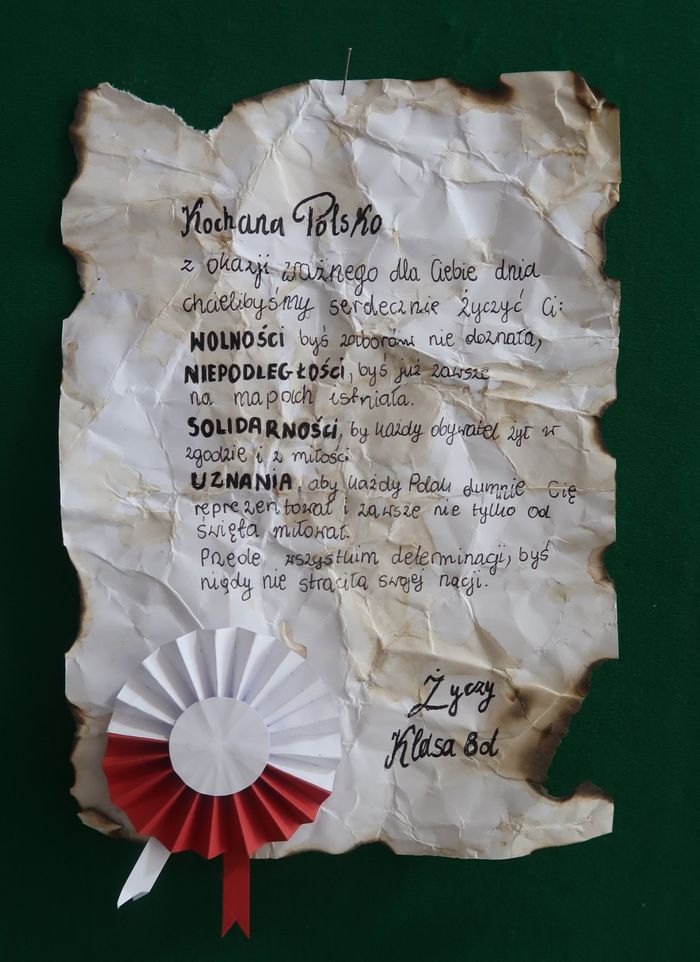 Kochana Polsko
z okazji ważnego dla Ciebie dnia
chcielibyśmy serdecznie życzyć Ci:
WOLNOŚCI byś zaborów nie doznała,
NIEPODLEGŁOŚCI, byś już zawsze
na mapach istniała.
SOLIDARNOŚCI, by każdy obywatel żył w
zgodzie i z miłości
UZNANIA, aby każdy Polak dumnie Cię
reprezentował i zawsze nie tylko od
święta miłował.
Przede wszystkim determinacji, byś
nigdy nie straciła swojej nacji.
Życzy
Klasa 8d